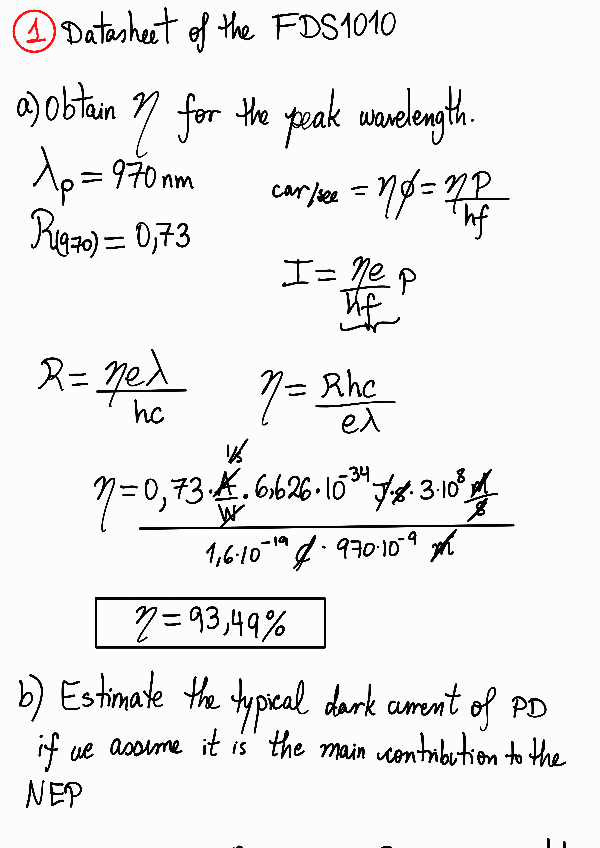 1 Datasheet of the FDS1010
a) Obtain η for the peak wavelength.
λp = 970 nm
car/sec = ηϕ = ηP/hf
R(970) = 0,73
I = ηe/hf P
R = ηeλ/hc
η = Rhc/eλ
η = 0,73 · A/W · 6,626·10^-34 J·s · 3·10^8 m/s
1,6·10^-19 C · 970·10^-9 m
η = 93,49%
b) Estimate the typical dark current of PD
if we assume it is the main contribution to the
NEP